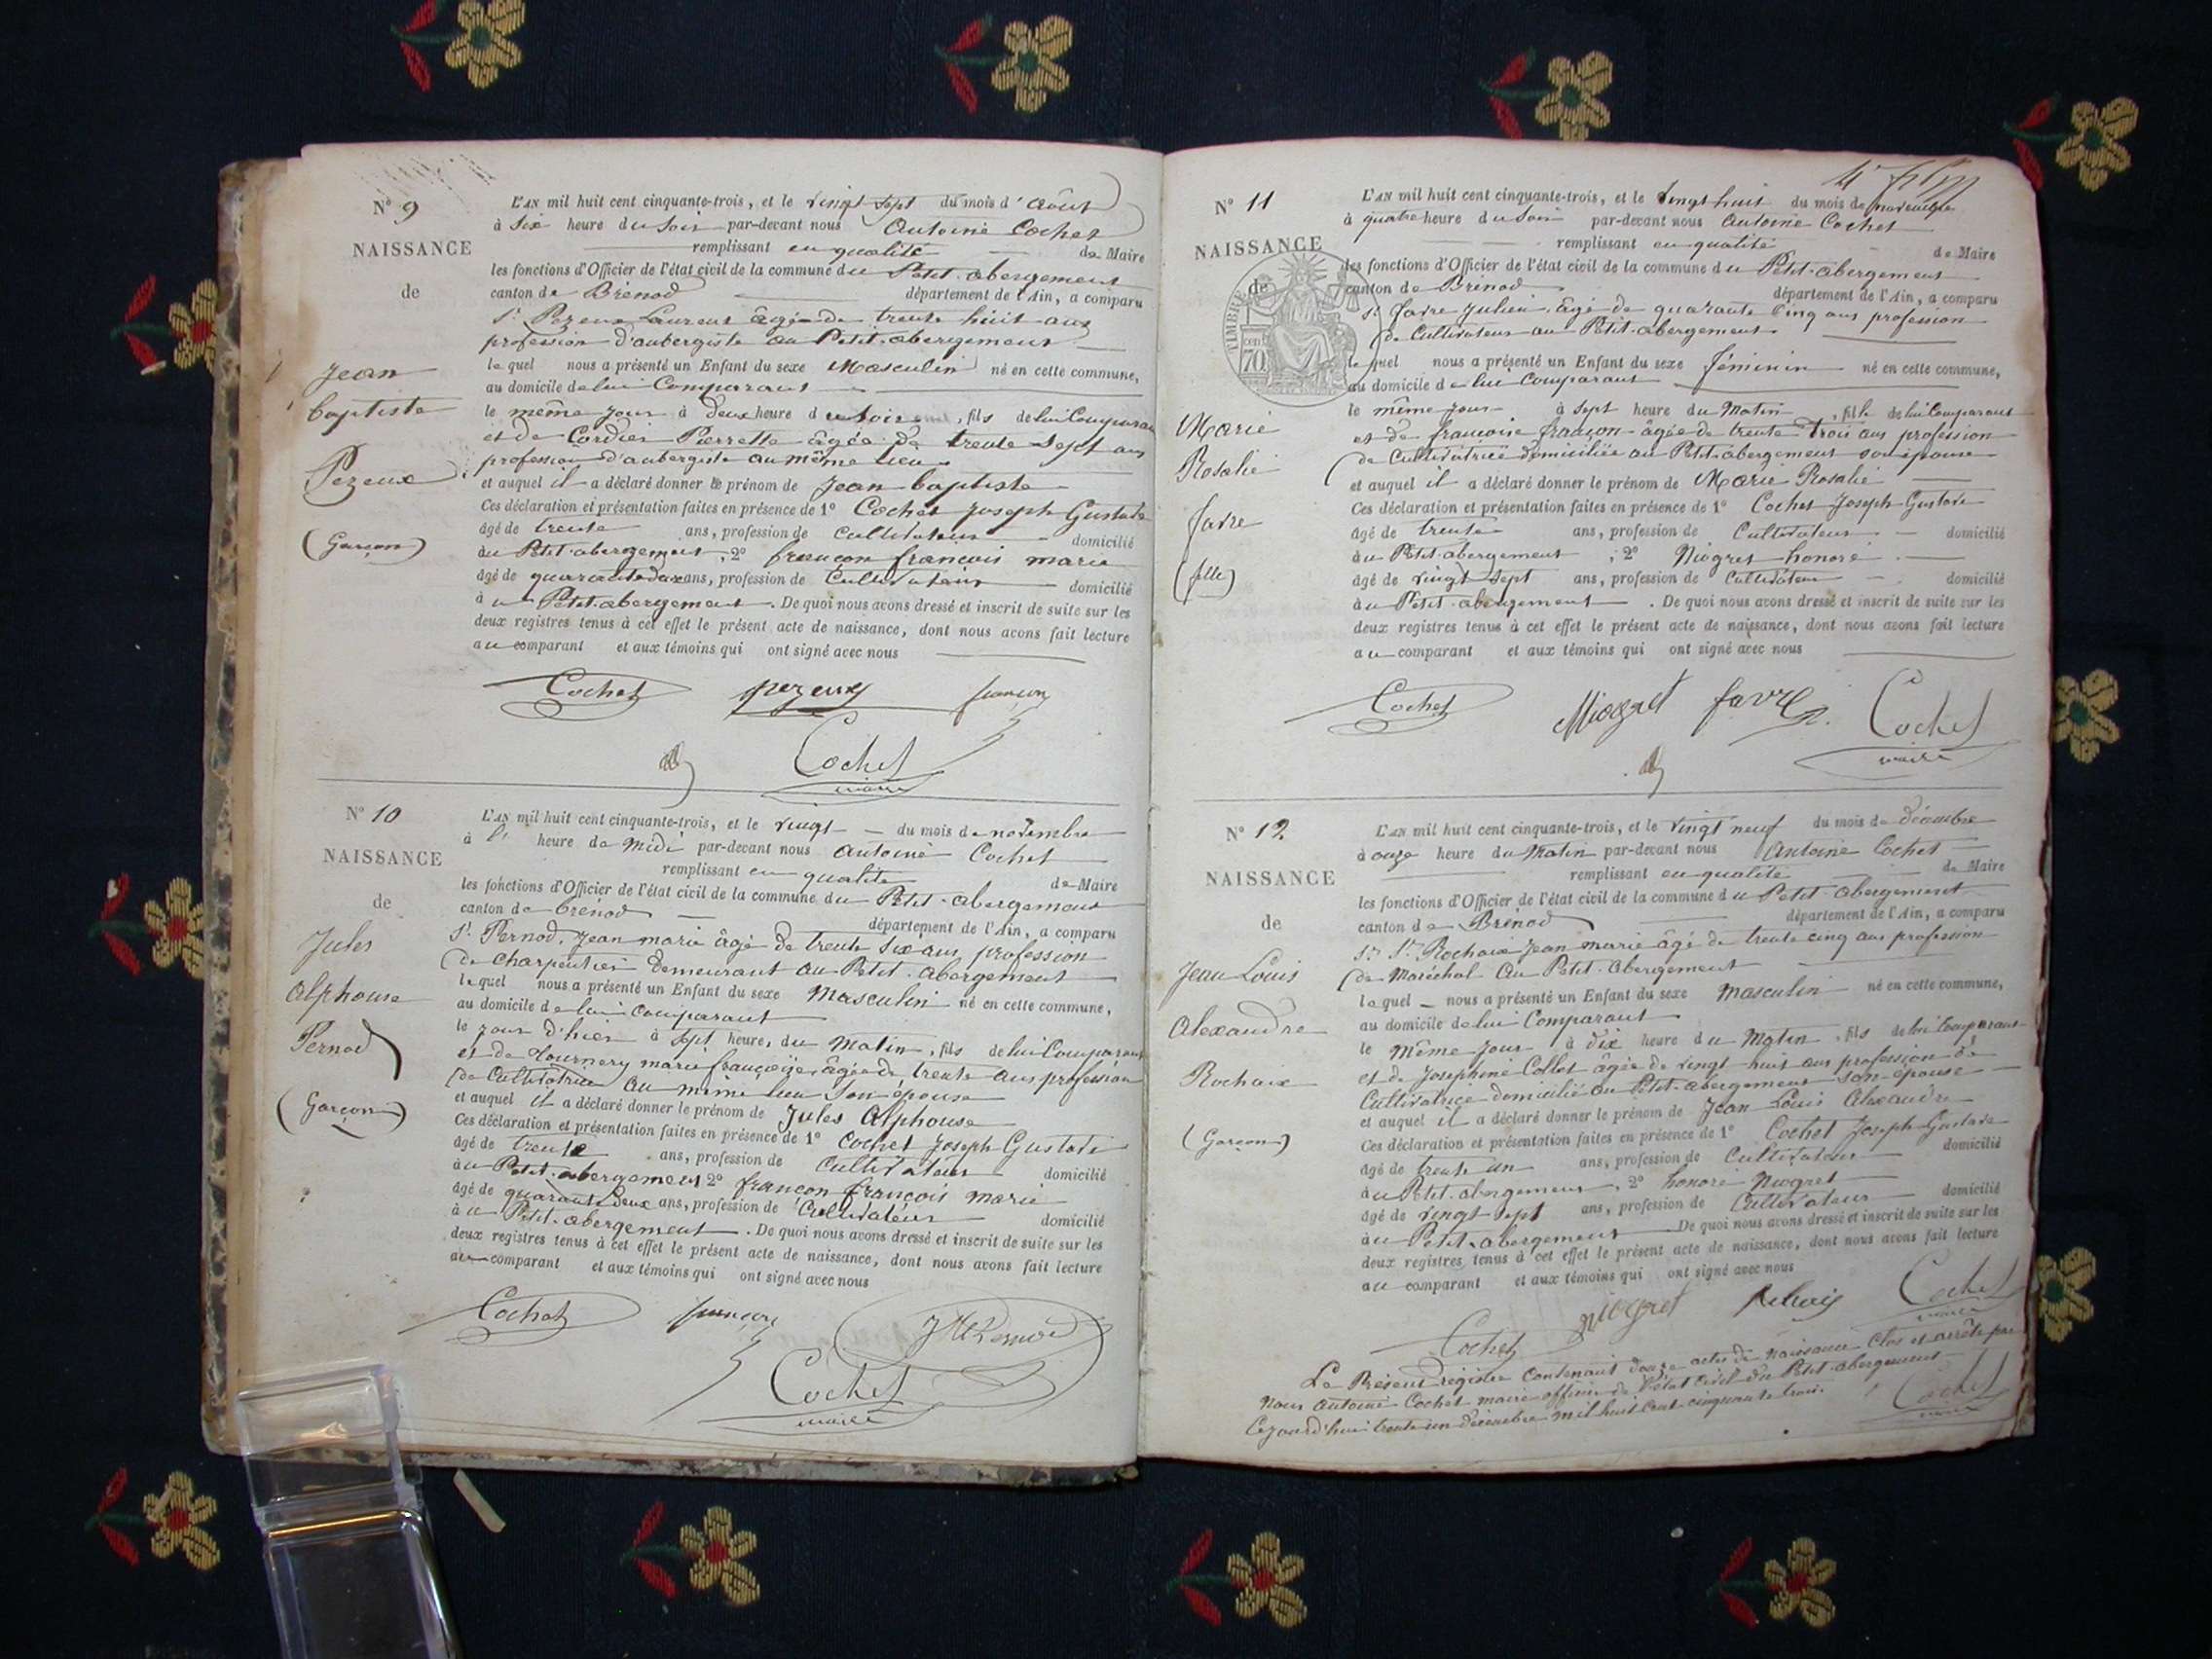 Nº 9
NAISSANCE
de
Jean
baptiste
Pezeux
(Garçon)
L'AN mil huit cent cinquante-trois, et le vingt sept du mois d'août
à Six heure du Soir par-devant nous Antoine Cochet
remplissant en qualité de Maire
les fonctions d'Officier de l'état civil de la commune du Petit-abergement
canton de Brénod département de l'Ain, a comparu
Sr. Pezeux Laurent âgé de trente huit ans
profession d'aubergiste au Petit-abergement
lequel nous a présenté un Enfant du sexe Masculin né en cette commune,
au domicile de lui Comparant
le même jour à deux heure du soir, fils de lui Comparant
et de Cordier Pierrette âgée de trente Sept ans
profession d'aubergiste au même lieu
et auquel il a déclaré donner le prénom de Jean baptiste
Ces déclaration et présentation faites en présence de 1º Cochet Joseph Gustave
âgé de trente ans, profession de Cultivateur domicilié
au Petit-abergement, 2º françon françois marie
âgé de quarante deux ans, profession de Cultivateur domicilié
à u Petit-abergement. De quoi nous avons dressé et inscrit de suite sur les
deux registres tenus à cet effet le présent acte de naissance, dont nous avons fait lecture
au comparant et aux témoins qui ont signé avec nous
Cochet pezeux françon
Cochet
maire
Nº 10
NAISSANCE
de
Jules
Alphonse
Pernod
(Garçon)
L'AN mil huit cent cinquante-trois, et le vingt du mois de novembre
à l' heure de Midi par-devant nous Antoine Cochet
remplissant en qualité de Maire
les fonctions d'Officier de l'état civil de la commune du Petit-abergement
canton de brénod département de l'Ain, a comparu
Sr. Pernod, Jean marie âgé de trente six ans, profession
de charpentier demeurant au Petit-abergement
lequel nous a présenté un Enfant du sexe Masculin né en cette commune,
au domicile de lui comparant
le jour d'hier à Sept heure, du Matin, fils de lui Comparant
et de Tournery marie françoise âgée de trente ans profession
de Cultivatrice au même lieu Son épouse
et auquel il a déclaré donner le prénom de Jules Alphonse
Ces déclaration et présentation faites en présence de 1º Cochet Joseph Gustave
âgé de trente ans, profession de Cultivateur domicilié
au Petit-abergement 2º françon françois marie
âgé de quarante deux ans, profession de Cultivateur domicilié
à u Petit-abergement. De quoi nous avons dressé et inscrit de suite sur les
deux registres tenus à cet effet le présent acte de naissance, dont nous avons fait lecture
au comparant et aux témoins qui ont signé avec nous
Cochet françon JM Pernod
Cochet
maire
Nº 11
NAISSANCE
de
TIMBRE
70
Marie
Rosalie
favre
(fille)
L'AN mil huit cent cinquante-trois, et le vingt huit du mois de novembre
à quatre heure du Soir par-devant nous Antoine Cochet
remplissant en qualité de Maire
les fonctions d'Officier de l'état civil de la commune du Petit-abergement
canton de Brénod département de l'Ain, a comparu
Sr. favre Julien, âgé de quarante Cinq ans profession
de Cultivateur au Petit-abergement
lequel nous a présenté un Enfant du sexe féminin né en cette commune,
au domicile de lui Comparant
le même jour à Sept heure du Matin, fille de lui Comparant
et de françoise françon âgée de trente trois ans profession
de Cultivatrice domiciliée au Petit-abergement son épouse
et auquel il a déclaré donner le prénom de Marie Rosalie
Ces déclaration et présentation faites en présence de 1º Cochet Joseph Gustave
âgé de trente ans, profession de Cultivateur domicilié
au Petit-abergement; 2º Niogret honoré
âgé de vingt Sept ans, profession de Cultivateur domicilié
à u Petit-abergement. De quoi nous avons dressé et inscrit de suite sur les
deux registres tenus à cet effet le présent acte de naissance, dont nous avons fait lecture
au comparant et aux témoins qui ont signé avec nous
Cochet Niogret favre Cochet
maire
Nº 12
NAISSANCE
de
Jean Louis
Alexandre
Rochaix
(Garçon)
L'AN mil huit cent cinquante-trois, et le vingt neuf du mois de décembre
à onze heure du Matin par-devant nous Antoine Cochet
remplissant en qualité de Maire
les fonctions d'Officier de l'état civil de la commune du Petit-abergement
canton de Brénod département de l'Ain, a comparu
Rochaix Jean marie âgé de trente cinq ans profession
de Maréchal au Petit-abergement
lequel nous a présenté un Enfant du sexe masculin né en cette commune,
au domicile de lui Comparant
le Même jour à dix heure du Matin, fils de lui Comparant
et de Josephine Collet âgée de vingt huit ans profession de
Cultivatrice domicilié au Petit-abergement son épouse
et auquel il a déclaré donner le prénom de Jean Louis Alexandre
Ces déclaration et présentation faites en présence de 1º Cochet Joseph Gustave
âgé de trente un ans, profession de Cultivateur domicilié
au Petit-abergement, 2º honoré Niogret
âgé de vingt Sept ans, profession de Cultivateur domicilié
à u Petit-abergement De quoi nous avons dressé et inscrit de suite sur les
deux registres tenus à cet effet le présent acte de naissance, dont nous avons fait lecture
au comparant et aux témoins qui ont signé avec nous
Cochet Niogret Cochet
maire
Le Présent registre Contenant douze actes de naissance Clos et arrêté par
Nous Antoine Cochet maire officier de l'état civil du Petit-abergement
Cejourd'hui trente un décembre mil huit cent cinquante trois
Cochet
maire